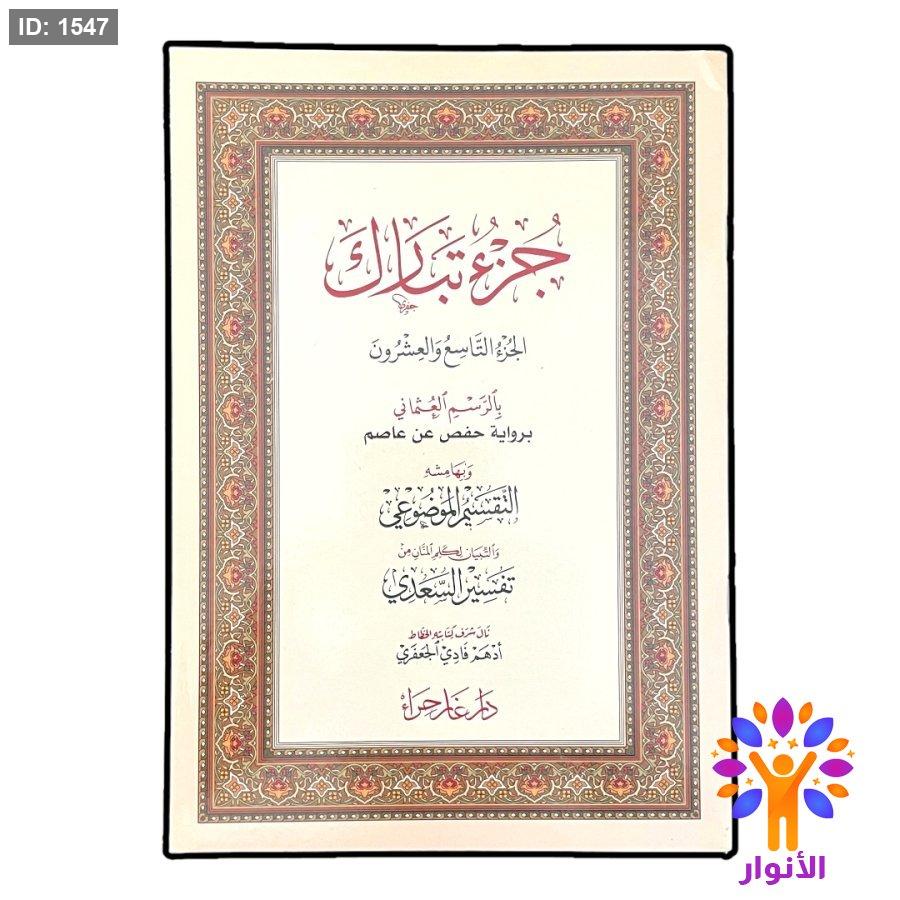 ID: 1547
جُزْءُ تَبَارَكَ
جعفري
الجُزْءُ التَّاسِعُ وَالعِشْرُونَ
بِالرَّسْمِ العُثْمَانِي
برواية حفص عن عاصم
وَبِهَامِشِهِ
التَّقْسِيْمُ المَوْضُوْعِيْ
وَالتِّبْيَانُ لِكَلَامِ المَنَّانِ مِنْ
تَفْسِيْرِ السَّعْدِيْ
نَالَ شَرَفَ كِتَابَتِهِ الخَطَّاطُ
أَدْهَمْ فَادِيْ الجَعْفَرِيْ
دَارُ غَارِ حِرَاء
الأنوار